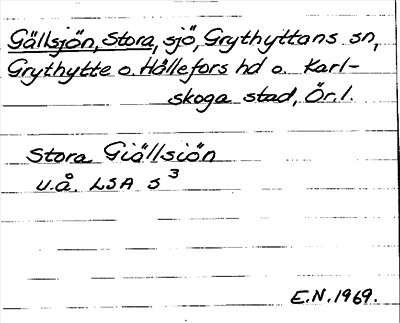 Gällsjön, Stora, sjö, Grythyttans sn,
Grythytte o. Hällefors hd o. Karl-
skoga stad, Ör.l.
Stora Giällsiön
u.å. LSA S 3
E.N. 1969.